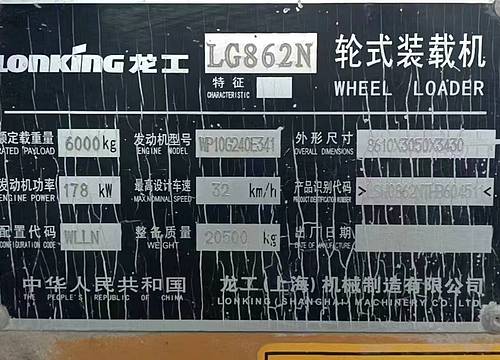 LONKING 龙工 LG862N 轮式装载机
特征
CHARACTERISTIC
WHEEL LOADER
额定载重量 6000kg 发动机型号 WP10G240E341 外形尺寸 8610X3050X3430
RATED PAYLOAD ENGINE MODEL OVERALL DIMENSIONS
发动机功率 178 kW 最高设计车速 32 km/h 产品识别代码
ENGINE POWER MAX.NOMINAL SPEED PRODUCT IDENTIFICATION NUMBER
配置代码 WLLN 整备质量 20500 kg 出厂日期
CONFIGURATION CODE WEIGHT DATE OF MANUFACTURE
中华人民共和国 龙工(上海)机械制造有限公司
THE PEOPLE'S REPUBLIC OF CHINA LONKING(SHANGHAI)MACHINERY CO.,LTD.